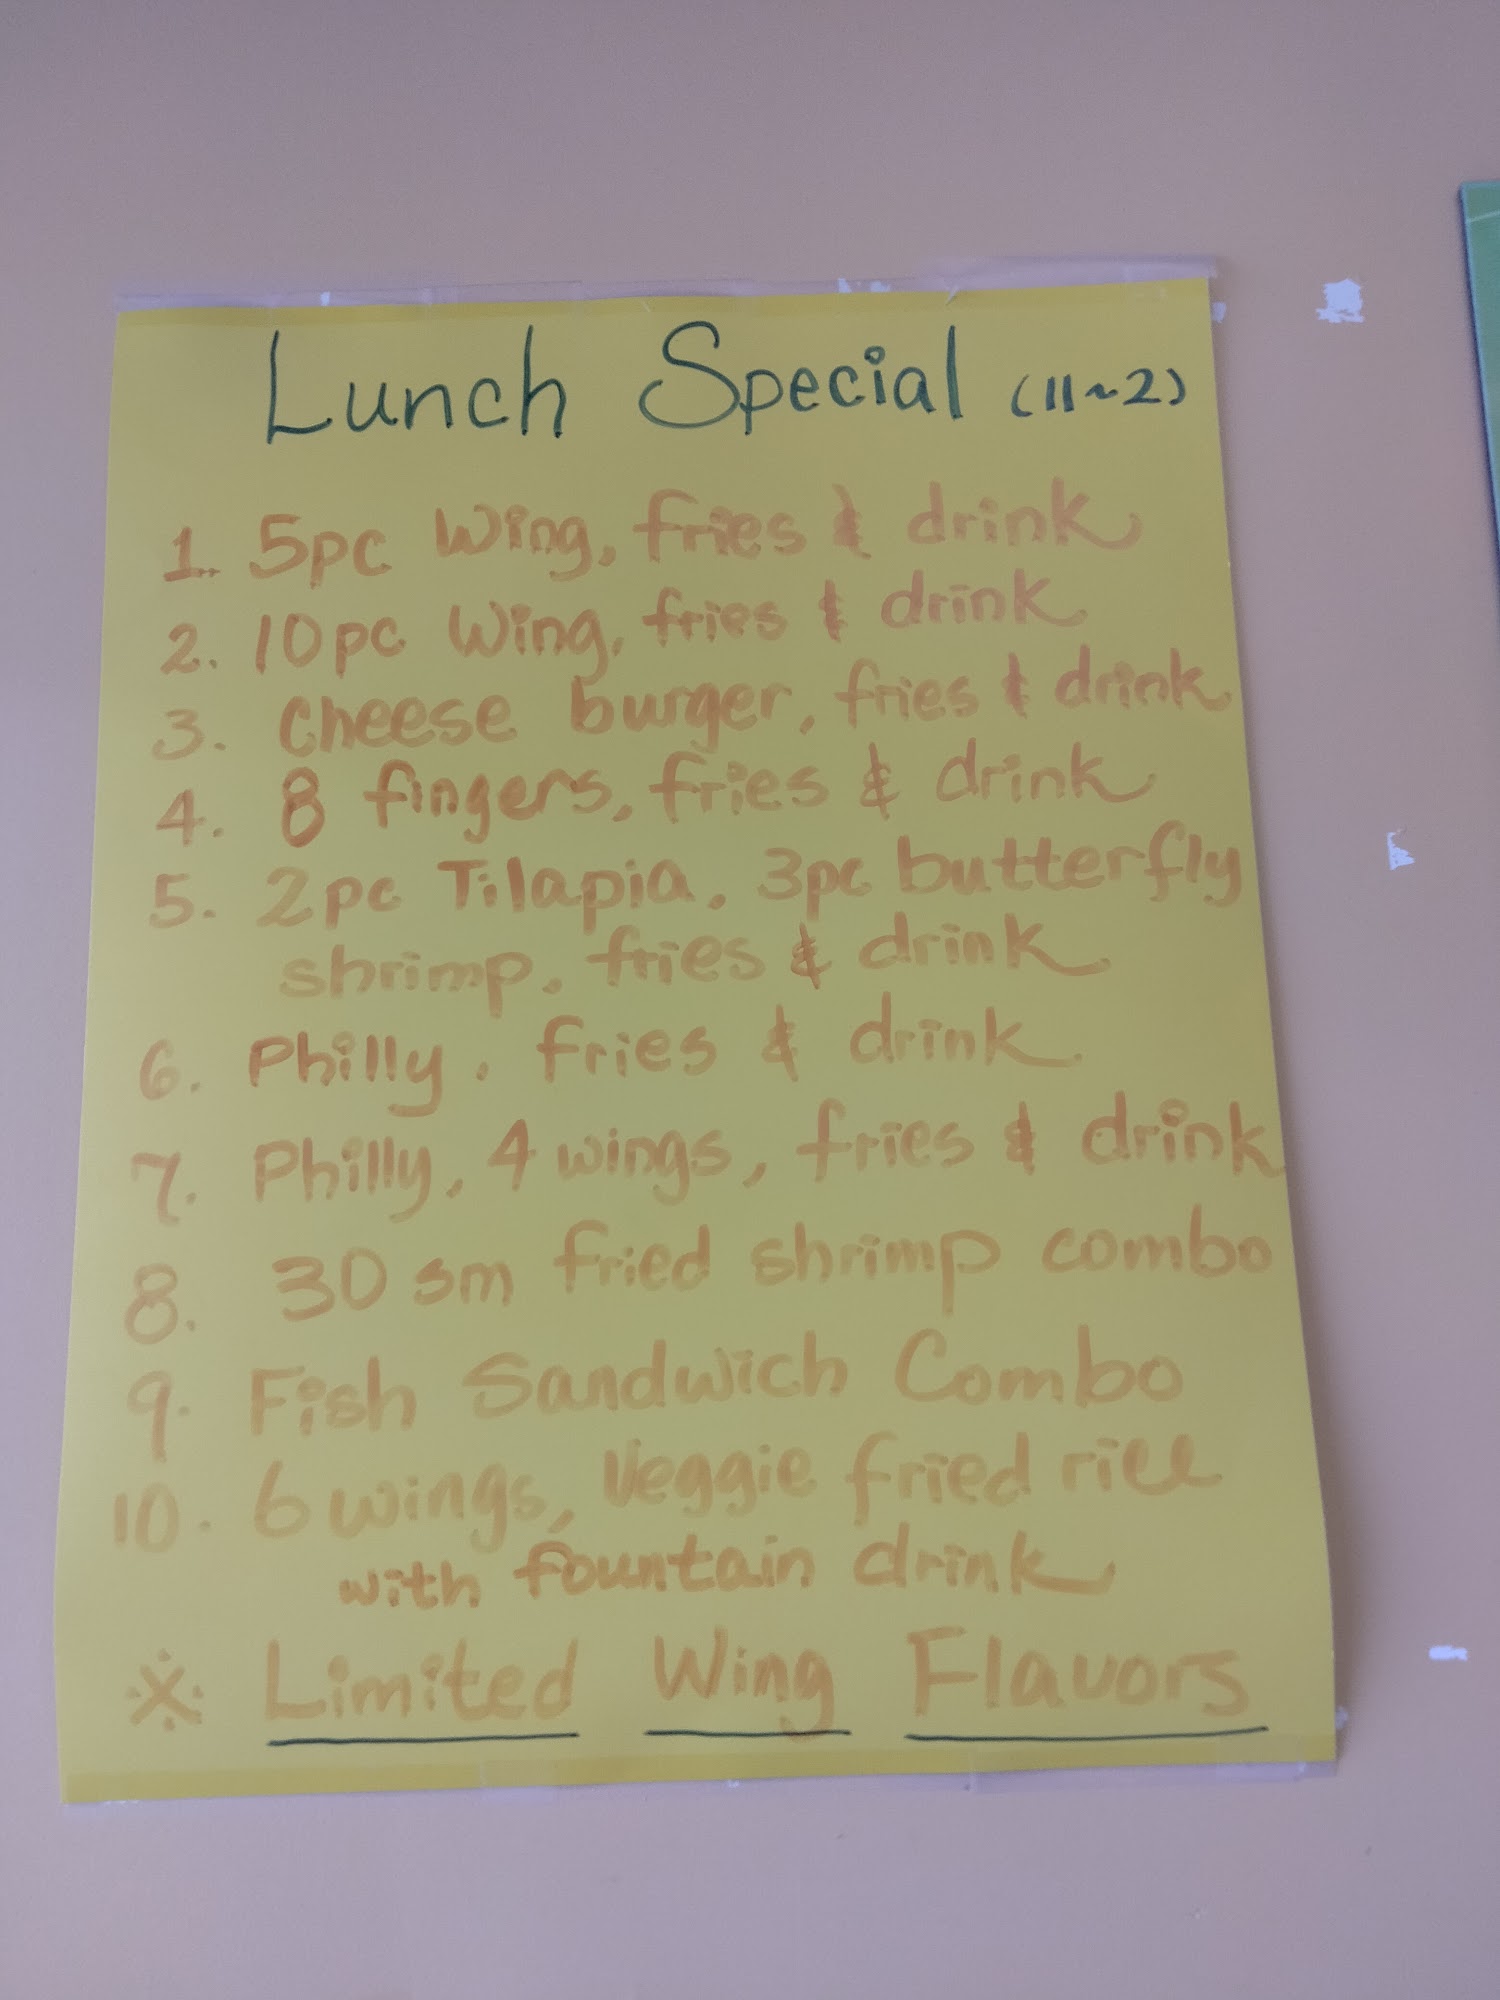 Lunch Special (11~2)
1. 5pc Wing, fries & drink
2. 10pc Wing, fries & drink
3. Cheese burger, fries & drink
4. 8 fingers, fries & drink
5. 2pc Tilapia, 3pc butterfly
shrimp, fries & drink
6. Philly, fries & drink
7. Philly, 4 wings, fries & drink
8. 30 sm fried shrimp combo
9. Fish Sandwich Combo
10. 6 wings, Veggie fried rice
with fountain drink
※ Limited Wing Flavors